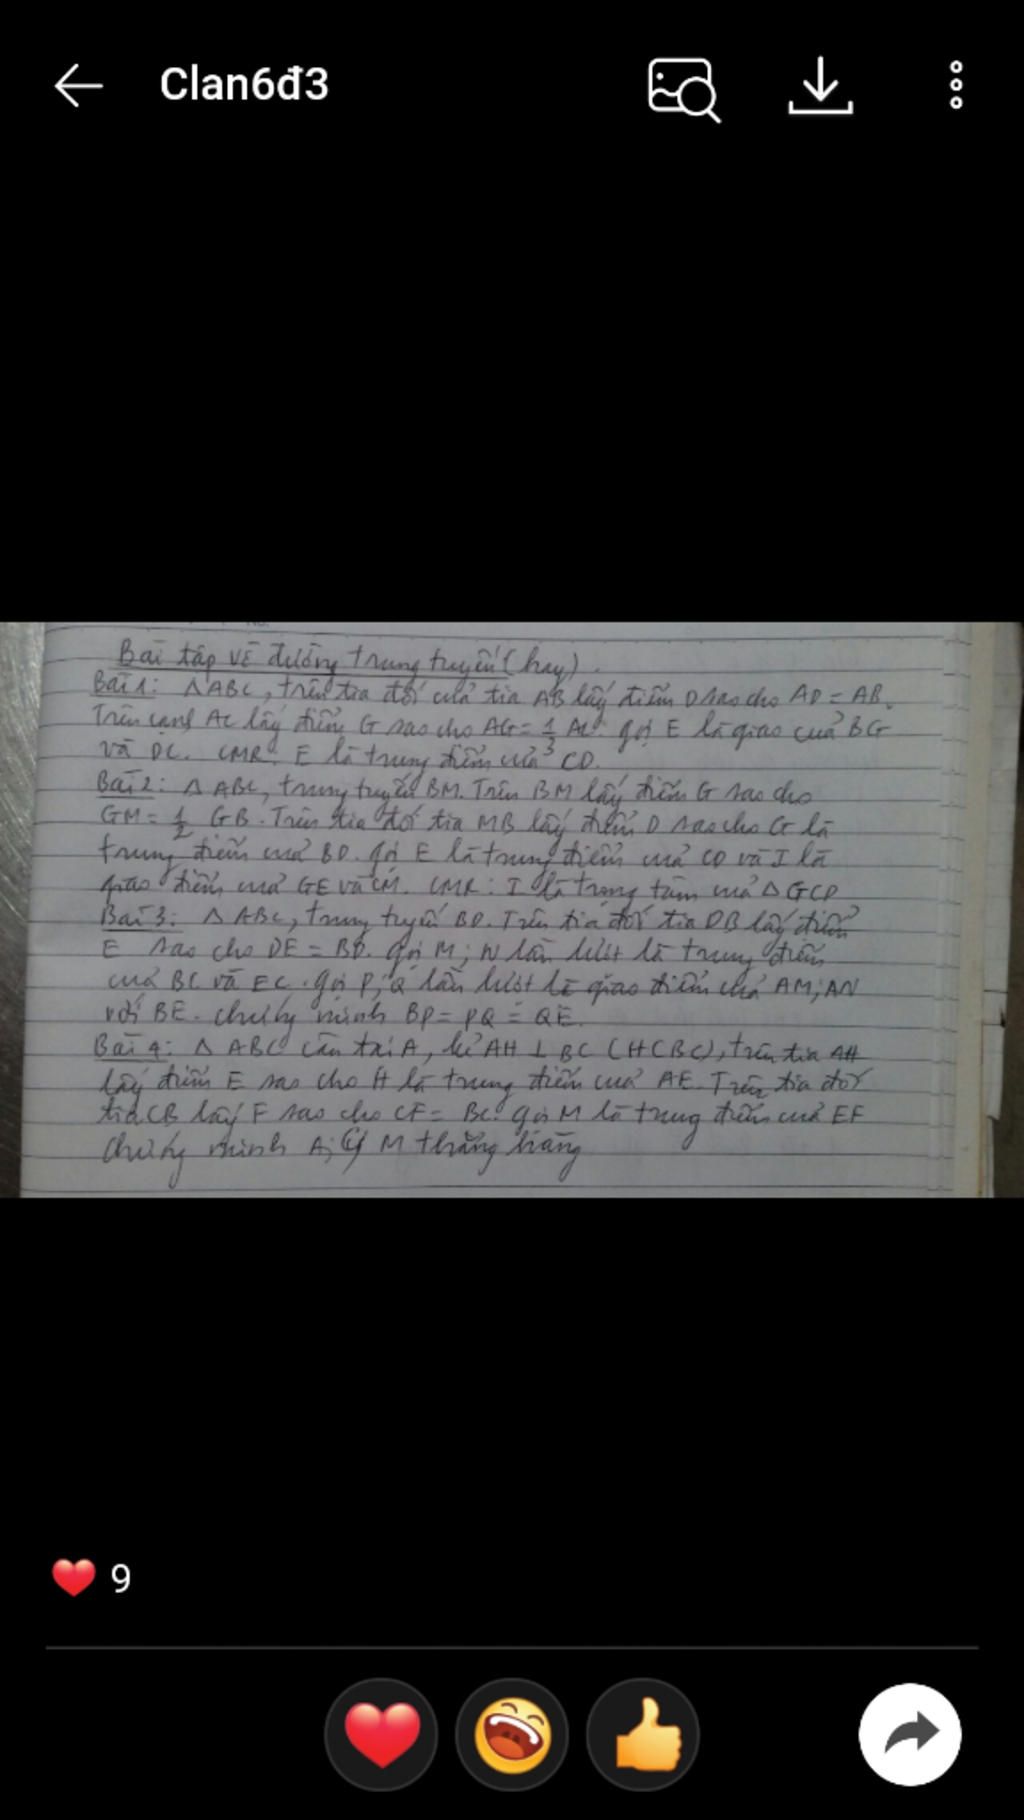 Clan6đ3
Bài tập về đường trung tuyến (hay).
Bài 1: Δ ABC, trên tia đối của tia AB lấy điểm D sao cho AD = AB.
Trên cạnh AC lấy điểm G sao cho AG = 1/3 AC. gọi E là giao của BG
và DC. CMR: E là trung điểm của CD.
Bài 2: Δ ABC, trung tuyến BM. Trên BM lấy điểm G sao cho
GM = 1/2 GB. Trên tia đối tia MB lấy điểm D sao cho G là
trung điểm của BD. gọi E là trung điểm của CD và I là
giao điểm của GE và CM. CMR: I là trọng tâm của Δ GCD
Bài 3: Δ ABC, trung tuyến BD. Trên tia đối tia DB lấy điểm
E sao cho DE = BD. gọi M; N lần lượt là trung điểm
của BC và EC. gọi P; Q lần lượt là giao điểm của AM; AN
với BE. chứng minh BP = PQ = QE.
Bài 4: Δ ABC cân tại A, kẻ AH ⊥ BC (HCBC), trên tia AH
lấy điểm E sao cho H là trung điểm của AE. Trên tia đối
tia CB lấy F sao cho CF = BC. gọi M là trung điểm của EF
chứng minh A; C; M thẳng hàng
9